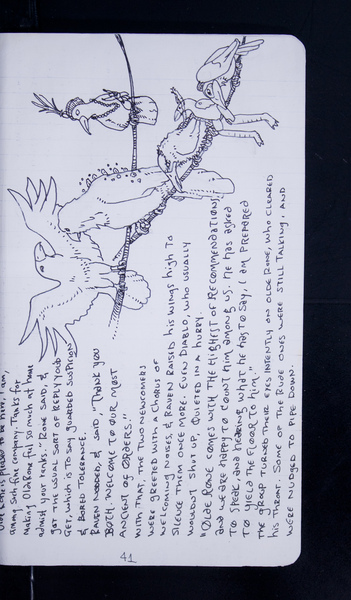 Olde Rone is pleased to be here, I am,
among such fine company. Thanks for
making Olde Rone feel so much at home
admist your events." Olde Rone said, &
got the usual sort of reply you'd
get, which is to say, guarded suspicion
& bored tolerance.
Raven nodded, & said "Thank you
both. Welcome to our most
ancient of orders."
With that, the two newcomers
were greeted with a chorus of
welcoming noises, & Raven raised his wings high to
silence them once more. Even Diablo, who usually
wouldn't shut up, quieted in a hurry.
"Olde Rone comes with the highest of recommendations
and we are happy to count him among us. He has asked
to speak, and hearing what he has to say, I am prepared
to yield the floor to him."
The group turned their eyes intently on Olde Rone, who cleared
his throat. Some of the rude ones were still talking, and
were nudged to pipe down.
41